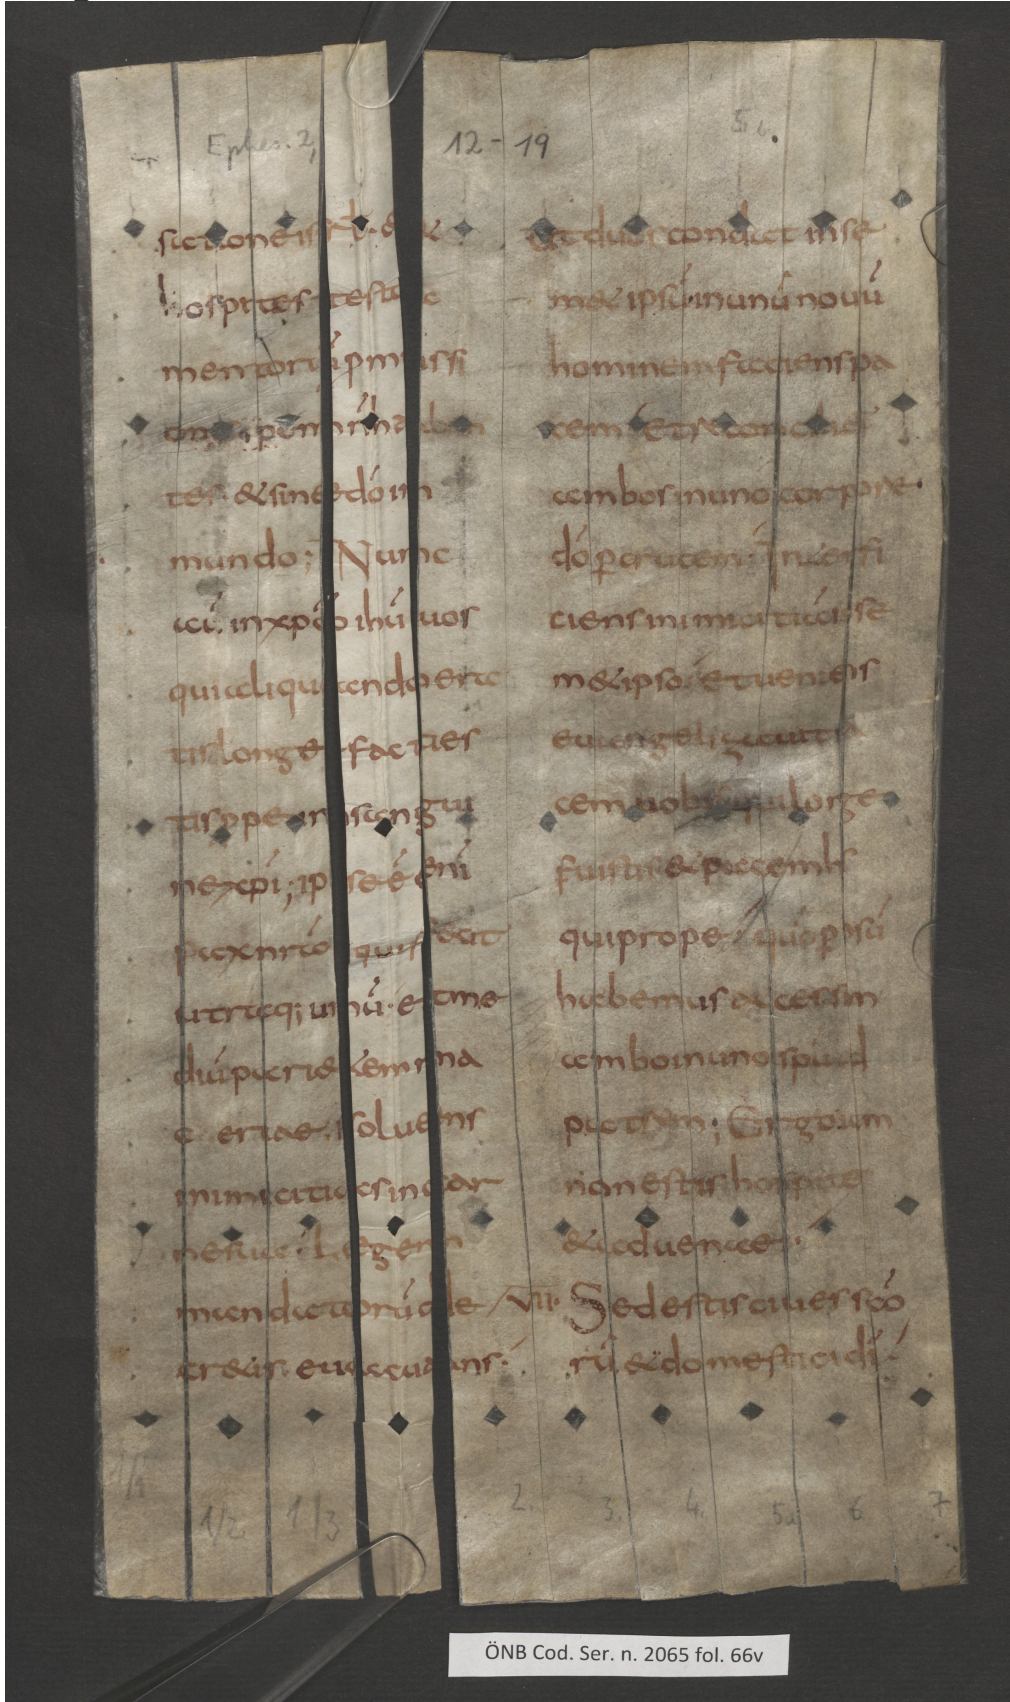 Ephes. 2, 12-19
5 b.
sationeisrl. &
hospites testa
mentorū pmissi
onis spem n haben
tes. & sine dō in
mundo; Nunc
aū. in xpō ihū uos
qui aliquando era
tis longe facti es
tis ppe in sangui
ne xpi; ipse ē enī
pax nrā qui fecit
utraq; unū. et me
diū parietem ma
c eriae. soluens
inimicitias in car
ne sua. Legem
mandatorū de
cr&is. euacuans.
ut duos condat in se
m&ipsū in unū nouū
hominem faciens pa
cem. Et reconciliet
ambos in uno corpore
dō p crucem. Interfi
ciens inimicitia in se
m&ipso. et ueniens
euangelizauit pa
cem uobis qui longe
fuistis & pacem his
qui prope. quō p ipsū
habemus accessum
ambo in uno spū ad
patrem; Ergo iam
non estis hospites
& aduenae.
VII. Sed estis ciues scō
rū. & domestici dī.
1/1 1/2 1/3 2. 3. 4. 5a 6 7
ÖNB Cod. Ser. n. 2065 fol. 66v